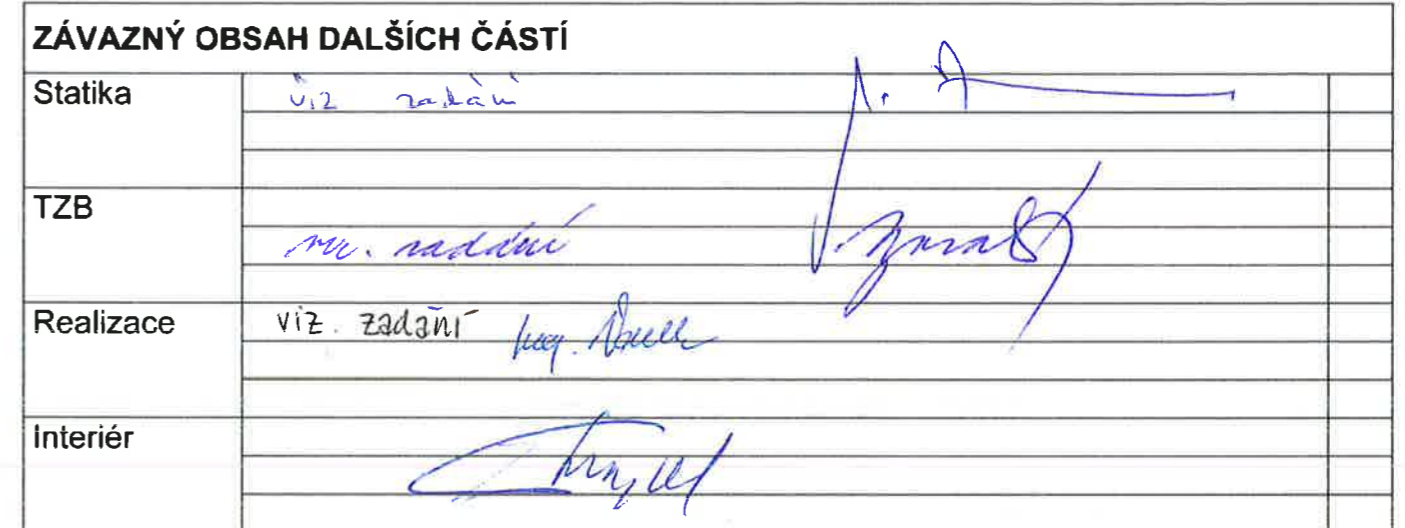 ZÁVAZNÝ OBSAH DALŠÍCH ČÁSTÍ
Statika viz zadání
TZB viz. zadání
Realizace viz. zadání Ing.
Interiér